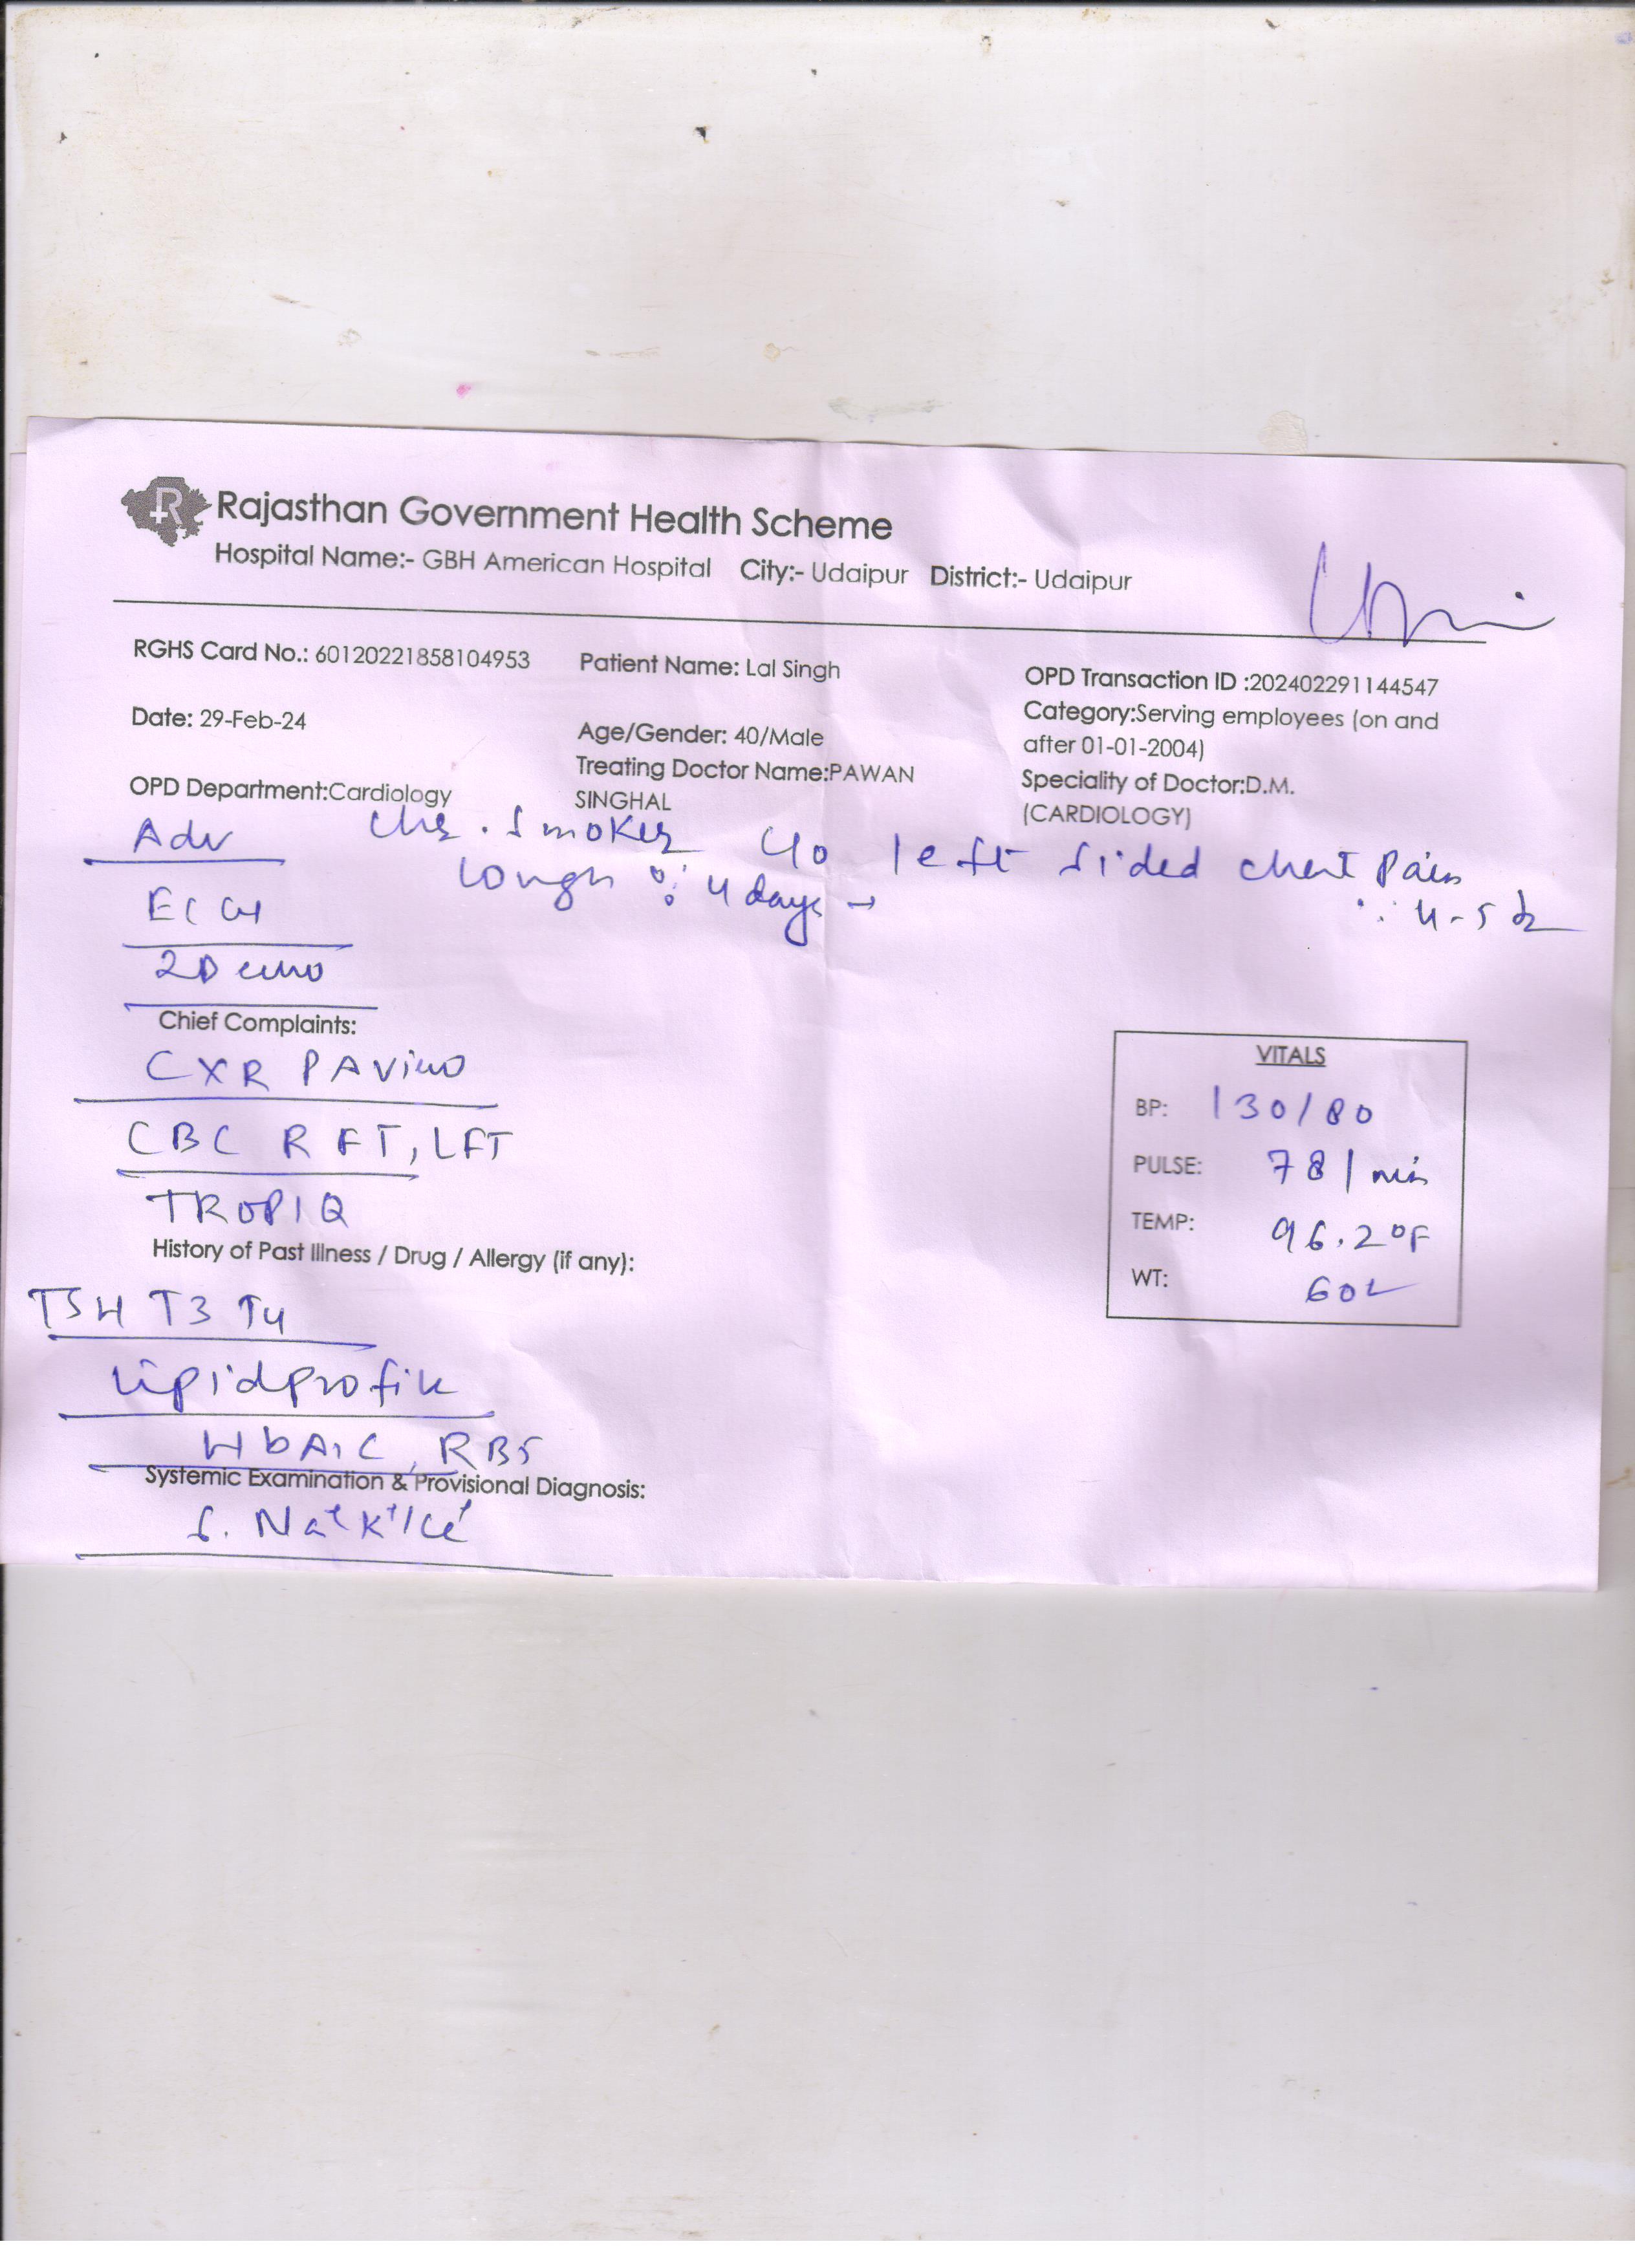 Rajasthan Government Health Scheme
Hospital Name:- GBH American Hospital City:- Udaipur District:- Udaipur
RGHS Card No.: 60120221858104953 Patient Name: Lal Singh OPD Transaction ID :202402291144547
Date: 29-Feb-24 Age/Gender: 40/Male Category:Serving employees (on and
after 01-01-2004)
OPD Department:Cardiology Treating Doctor Name:PAWAN Speciality of Doctor:D.M.
SINGHAL (CARDIOLOGY)
Adv Chr. Smoker c/o left sided chest Pain
Cough 4 days → 4-5 d
ECG
2D echo
Chief Complaints:
CXR PA View
CBC RFT, LFT
TROP I Q
History of Past Illness / Drug / Allergy (if any):
TSH T3 T4
Lipid profile
HbA1C, RBS
Systemic Examination & Provisional Diagnosis:
S. Na+ K+/
VITALS
BP: 130/80
PULSE: 78/min
TEMP: 96.2°F
WT: 60